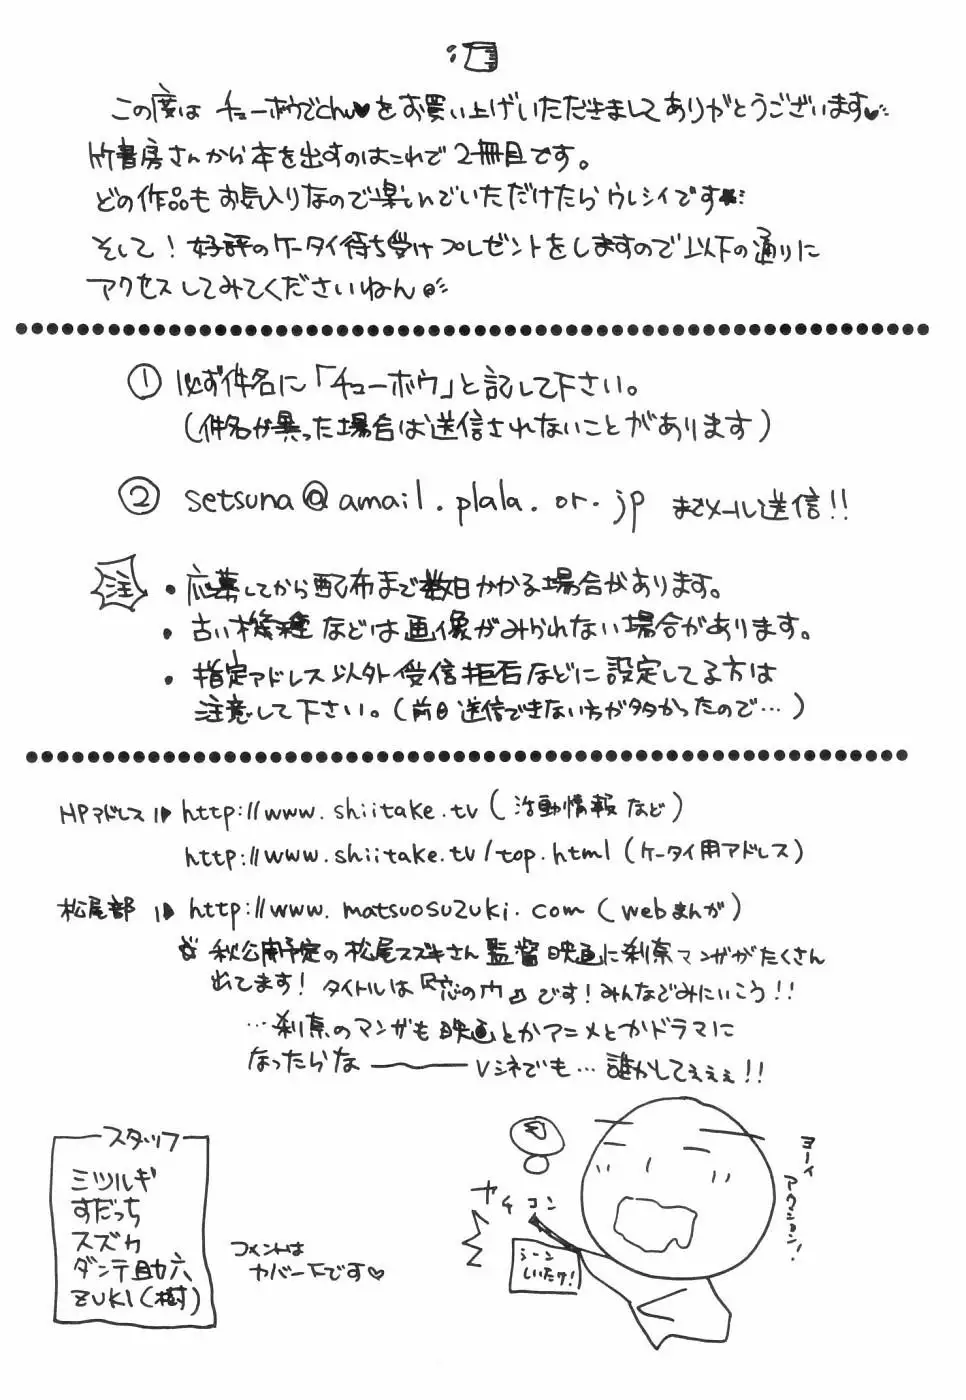 この度は チューボウでchu♥をお買い上げいただきましてありがとうございます♥
竹書房さんから本を出すのはこれで2冊目です。
どの作品もお気入りなので楽しんでいただけたらウレシイです★
そして！好評のケータイ待ち受けプレゼントをしますので以下の通りに
アクセスしてみてくださいねん。
① 必ず件名に「チューボウ」と記して下さい。
（件名が異った場合は送信されないことがあります）
② setsuna@amail.plala.or.jp までメール送信!!
注 ・応募してから配布まで数日かかる場合があります。
・古い機種などは画像がみられない場合があります。
・指定アドレス以外受信拒否などに設定してる方は
注意して下さい。（前回送信できない方が多かったので…）
HPアドレス http://www.shiitake.tv（活動情報など）
http://www.shiitake.tv/top.html（ケータイ用アドレス）
松尾部 http://www.matsuosuzuki.com（webまんが）
秋公開予定の松尾スズキさん監督映画に刹奈マンガがたくさん
出てます！タイトルは『恋の門』です！みんなでみにいこう!!
…刹奈のマンガも映画とかアニメとかドラマに
なったらな――Vシネでも…誰かしてぇぇぇ!!
スタッフ
ミツルギ
すだっち
スズカ
ダンテ助六
ZUKI（樹）
コメントは
カバー下です♡
カチコン
シーン
しいたけ！
ヨーイ
アクション！